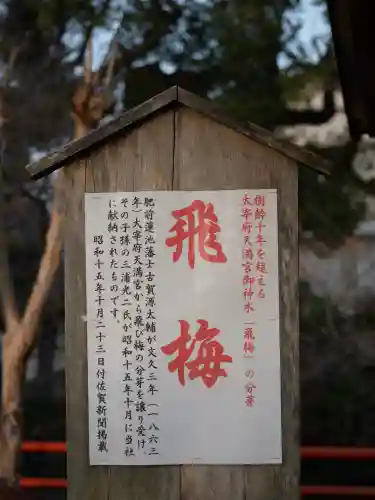 樹齢千年を超える
太宰府天満宮御神木「飛梅」の分芽
飛梅
肥前蓮池藩士古賀源太輔が文久三年（一八六三
年）大宰府天満宮から飛び梅の分芽を譲り受け、
その子孫の三浦光二氏が昭和十五年十月に当社
に献納されたものです。
昭和十五年十月二十三日付佐賀新聞掲載